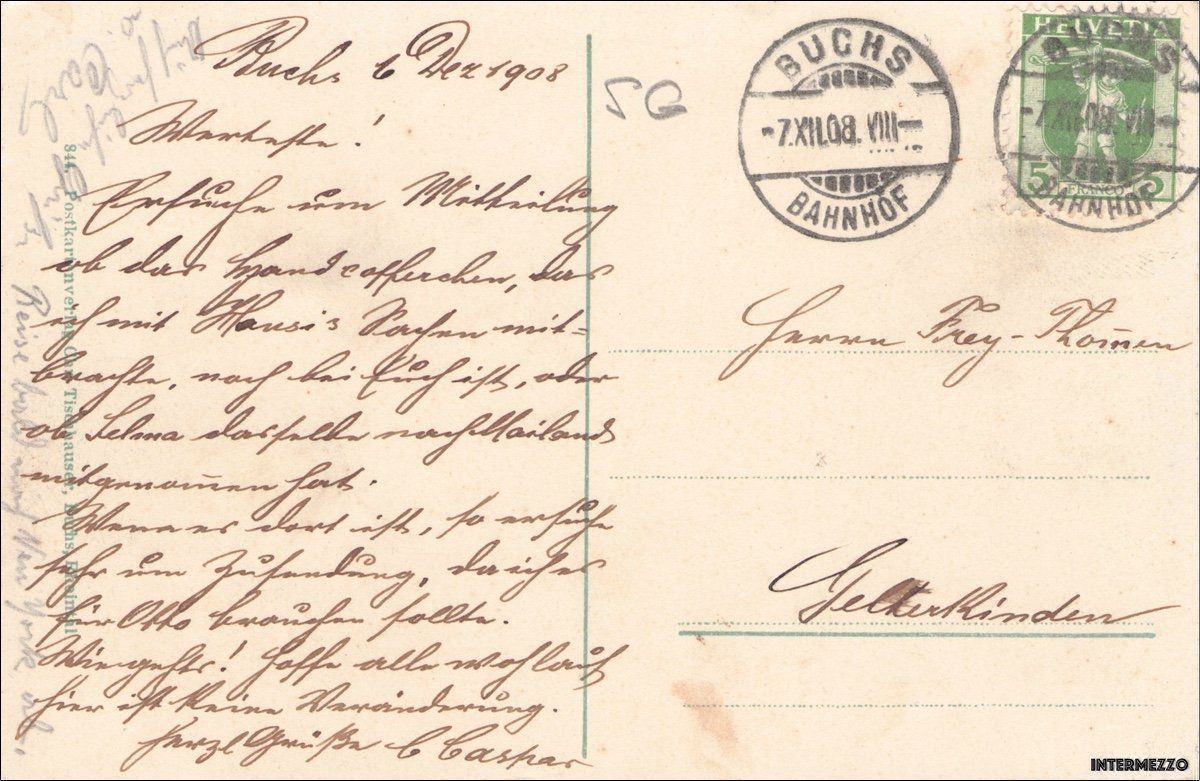 Buchs 6 Dez 1908
Werteste!
Ersuche um Mittheilung
ob das Handcofferchen, das
ich mit Hausis Sachen mit-
brachte, noch bei Euch ist, oder
ob Selma dasselbe nach Mailand
mitgenom̄en hat.
Wenn es dort ist, so ersuche
sehr um Zusendung, da ich es
für Otto brauchen sollte.
Wie gehts! Hoffe alle wohlauf
hier ist keine Veränderung.
Herzl Grüße C Caspar
Reise bald nach New York ab.
844 Postkartenverlag Chr. Tischhauser, Buchs, Rheintal
50
BUCHS
-7.XII.08. VIII-
BAHNHOF
HELVETIA
5 FRANCO 5
BUCHS
-7.XII.08. VIII-
BAHNHOF
Herrn Frey-Thom̄en
Gelterkinden
INTERMEZZO